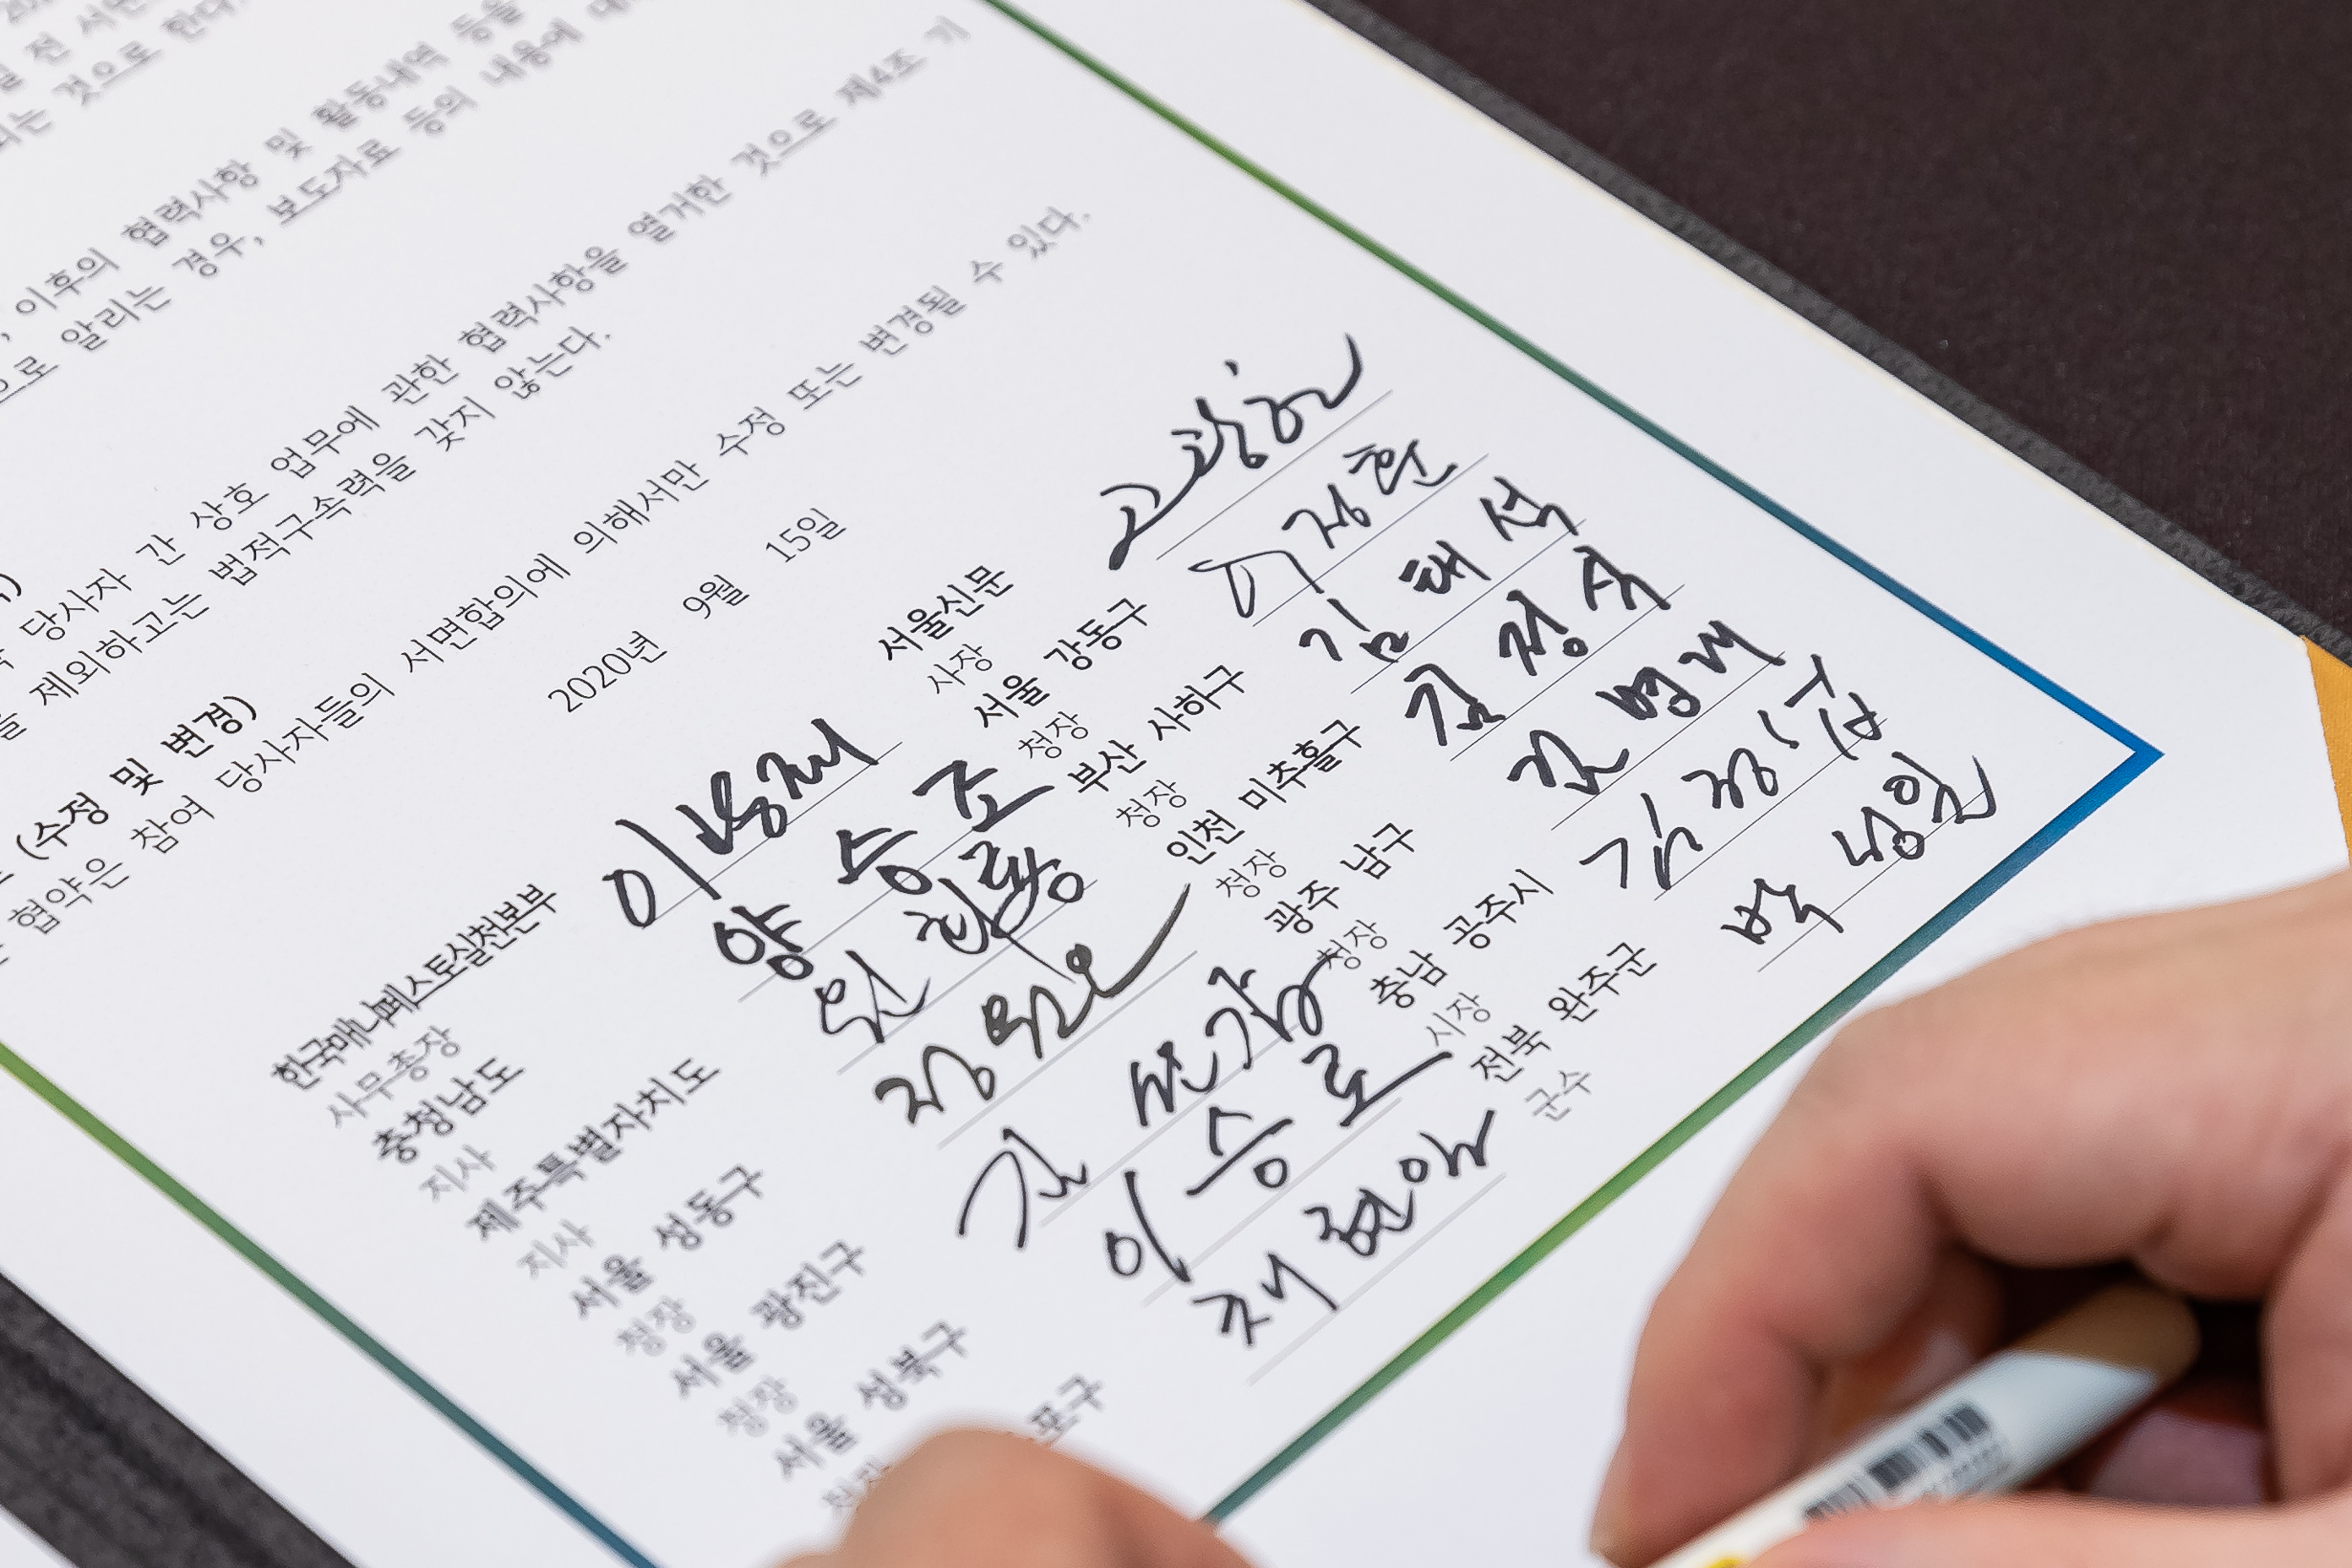 전
것으로 한다.
이후의 협력사항 및 활동내역 등을
알리는 경우, 보도자료 등의 내용에
당사자 간 상호 업무에 관한 협력사항을 열거한 것으로 제4조 기
제외하고는 법적구속력을 갖지 않는다.
(수정 및 변경)
협약은 참여 당사자들의 서면합의에 의해서만 수정 또는 변경될 수 있다.
2020년 9월 15일
한국매니페스토실천본부
사무총장
충청남도 양승조
지사
제주특별자치도 원희룡
지사
서울 성동구 정원오
청장
서울 광진구 김선갑
청장
서울 성북구 이승로
청장
포구
서울신문 고광헌
사장
서울 강동구 이정훈
청장
부산 사하구 김태석
청장
인천 미추홀구 김정식
청장
광주 남구 김병내
청장
충남 공주시 김정섭
시장
전북 완주군 박성일
군수